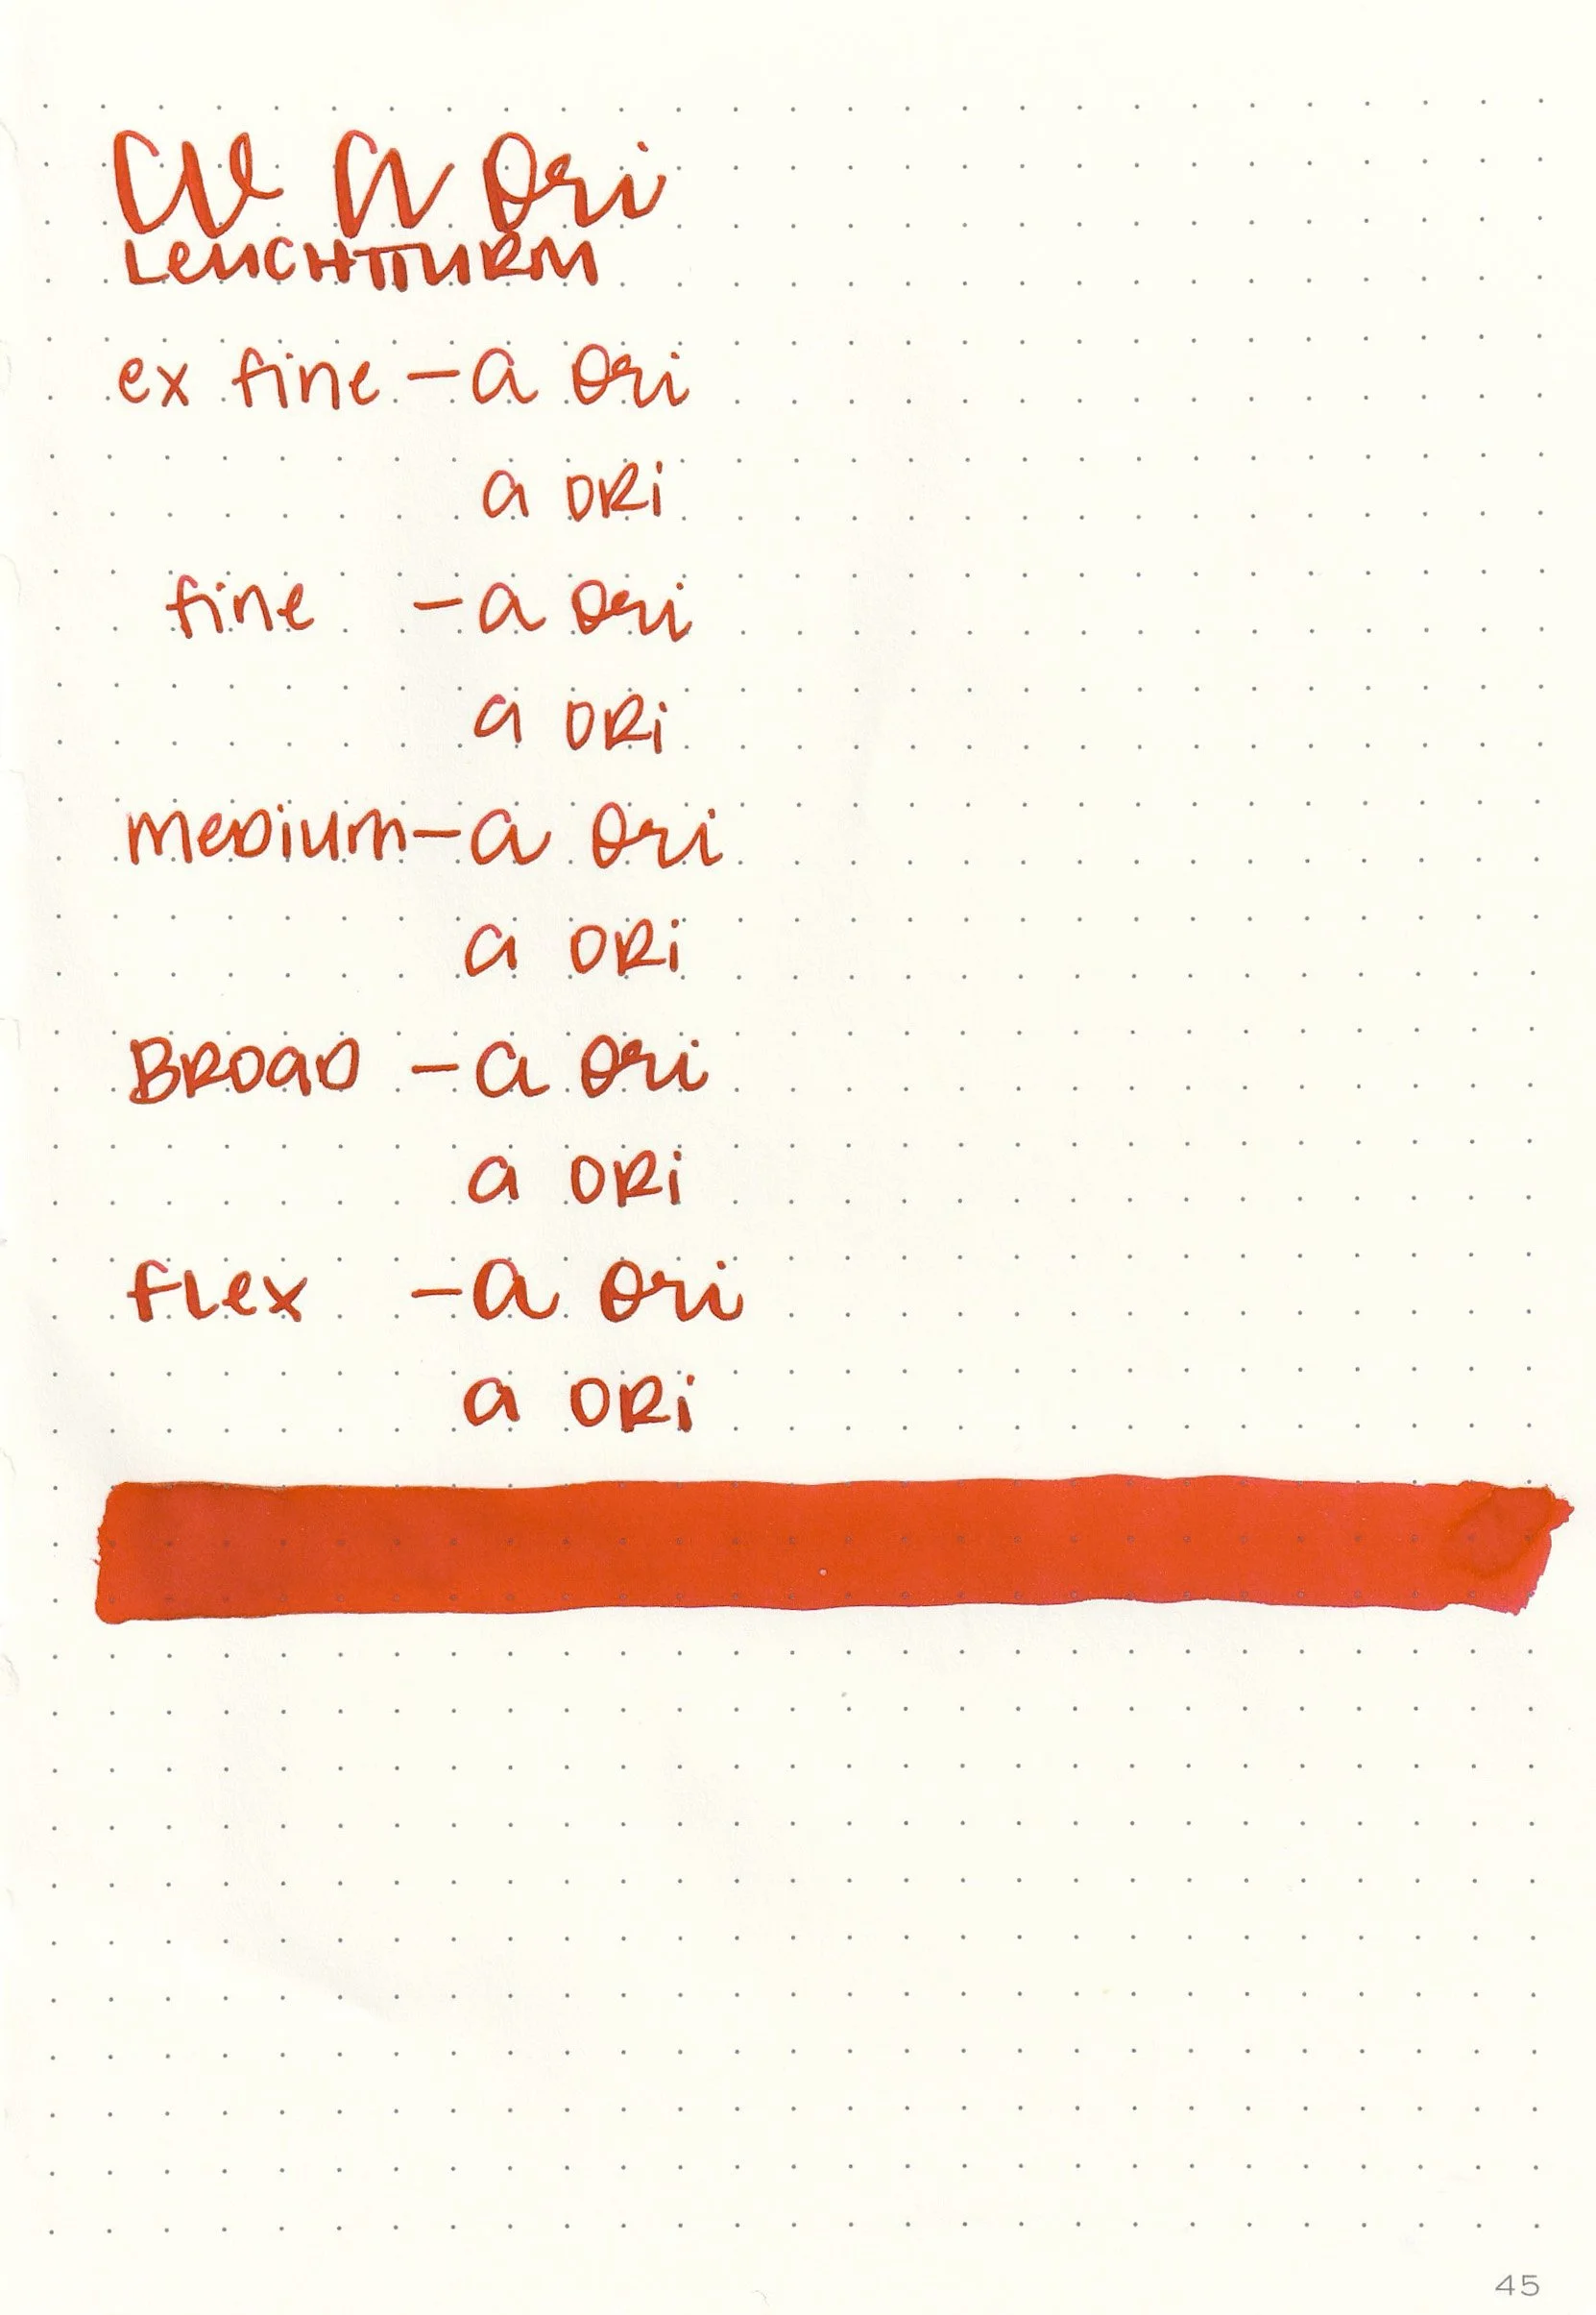 CV a Ori
LeuCHTTURM
ex fine – a Ori
a ORi
fine – a Ori
a ORi
meDium – a Ori
a ORi
BROaD – a Ori
a ORi
fLex – a Ori
a ORi
45